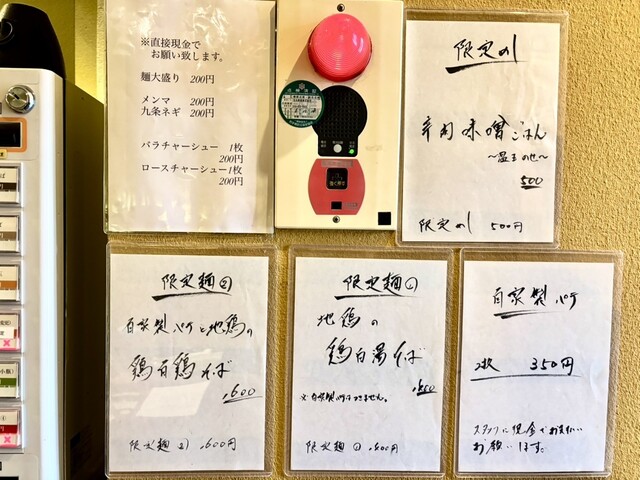 ※直接現金で
お願い致します。
麺大盛り 200円
メンマ 200円
九条ネギ 200円
バラチャーシュー 1枚
200円
ロースチャーシュー1枚
200円
限定めし
辛肉味噌ごはん
～温玉のせ～
500
限定めし 500円
限定麺②
自家製パテと地鶏の
鶏白鶏そば
限定麺①
地鶏の
鶏白湯そば
限定麺①
自家製パテ
2枚 350円
スタッフに現金でお支払い
お願いします。